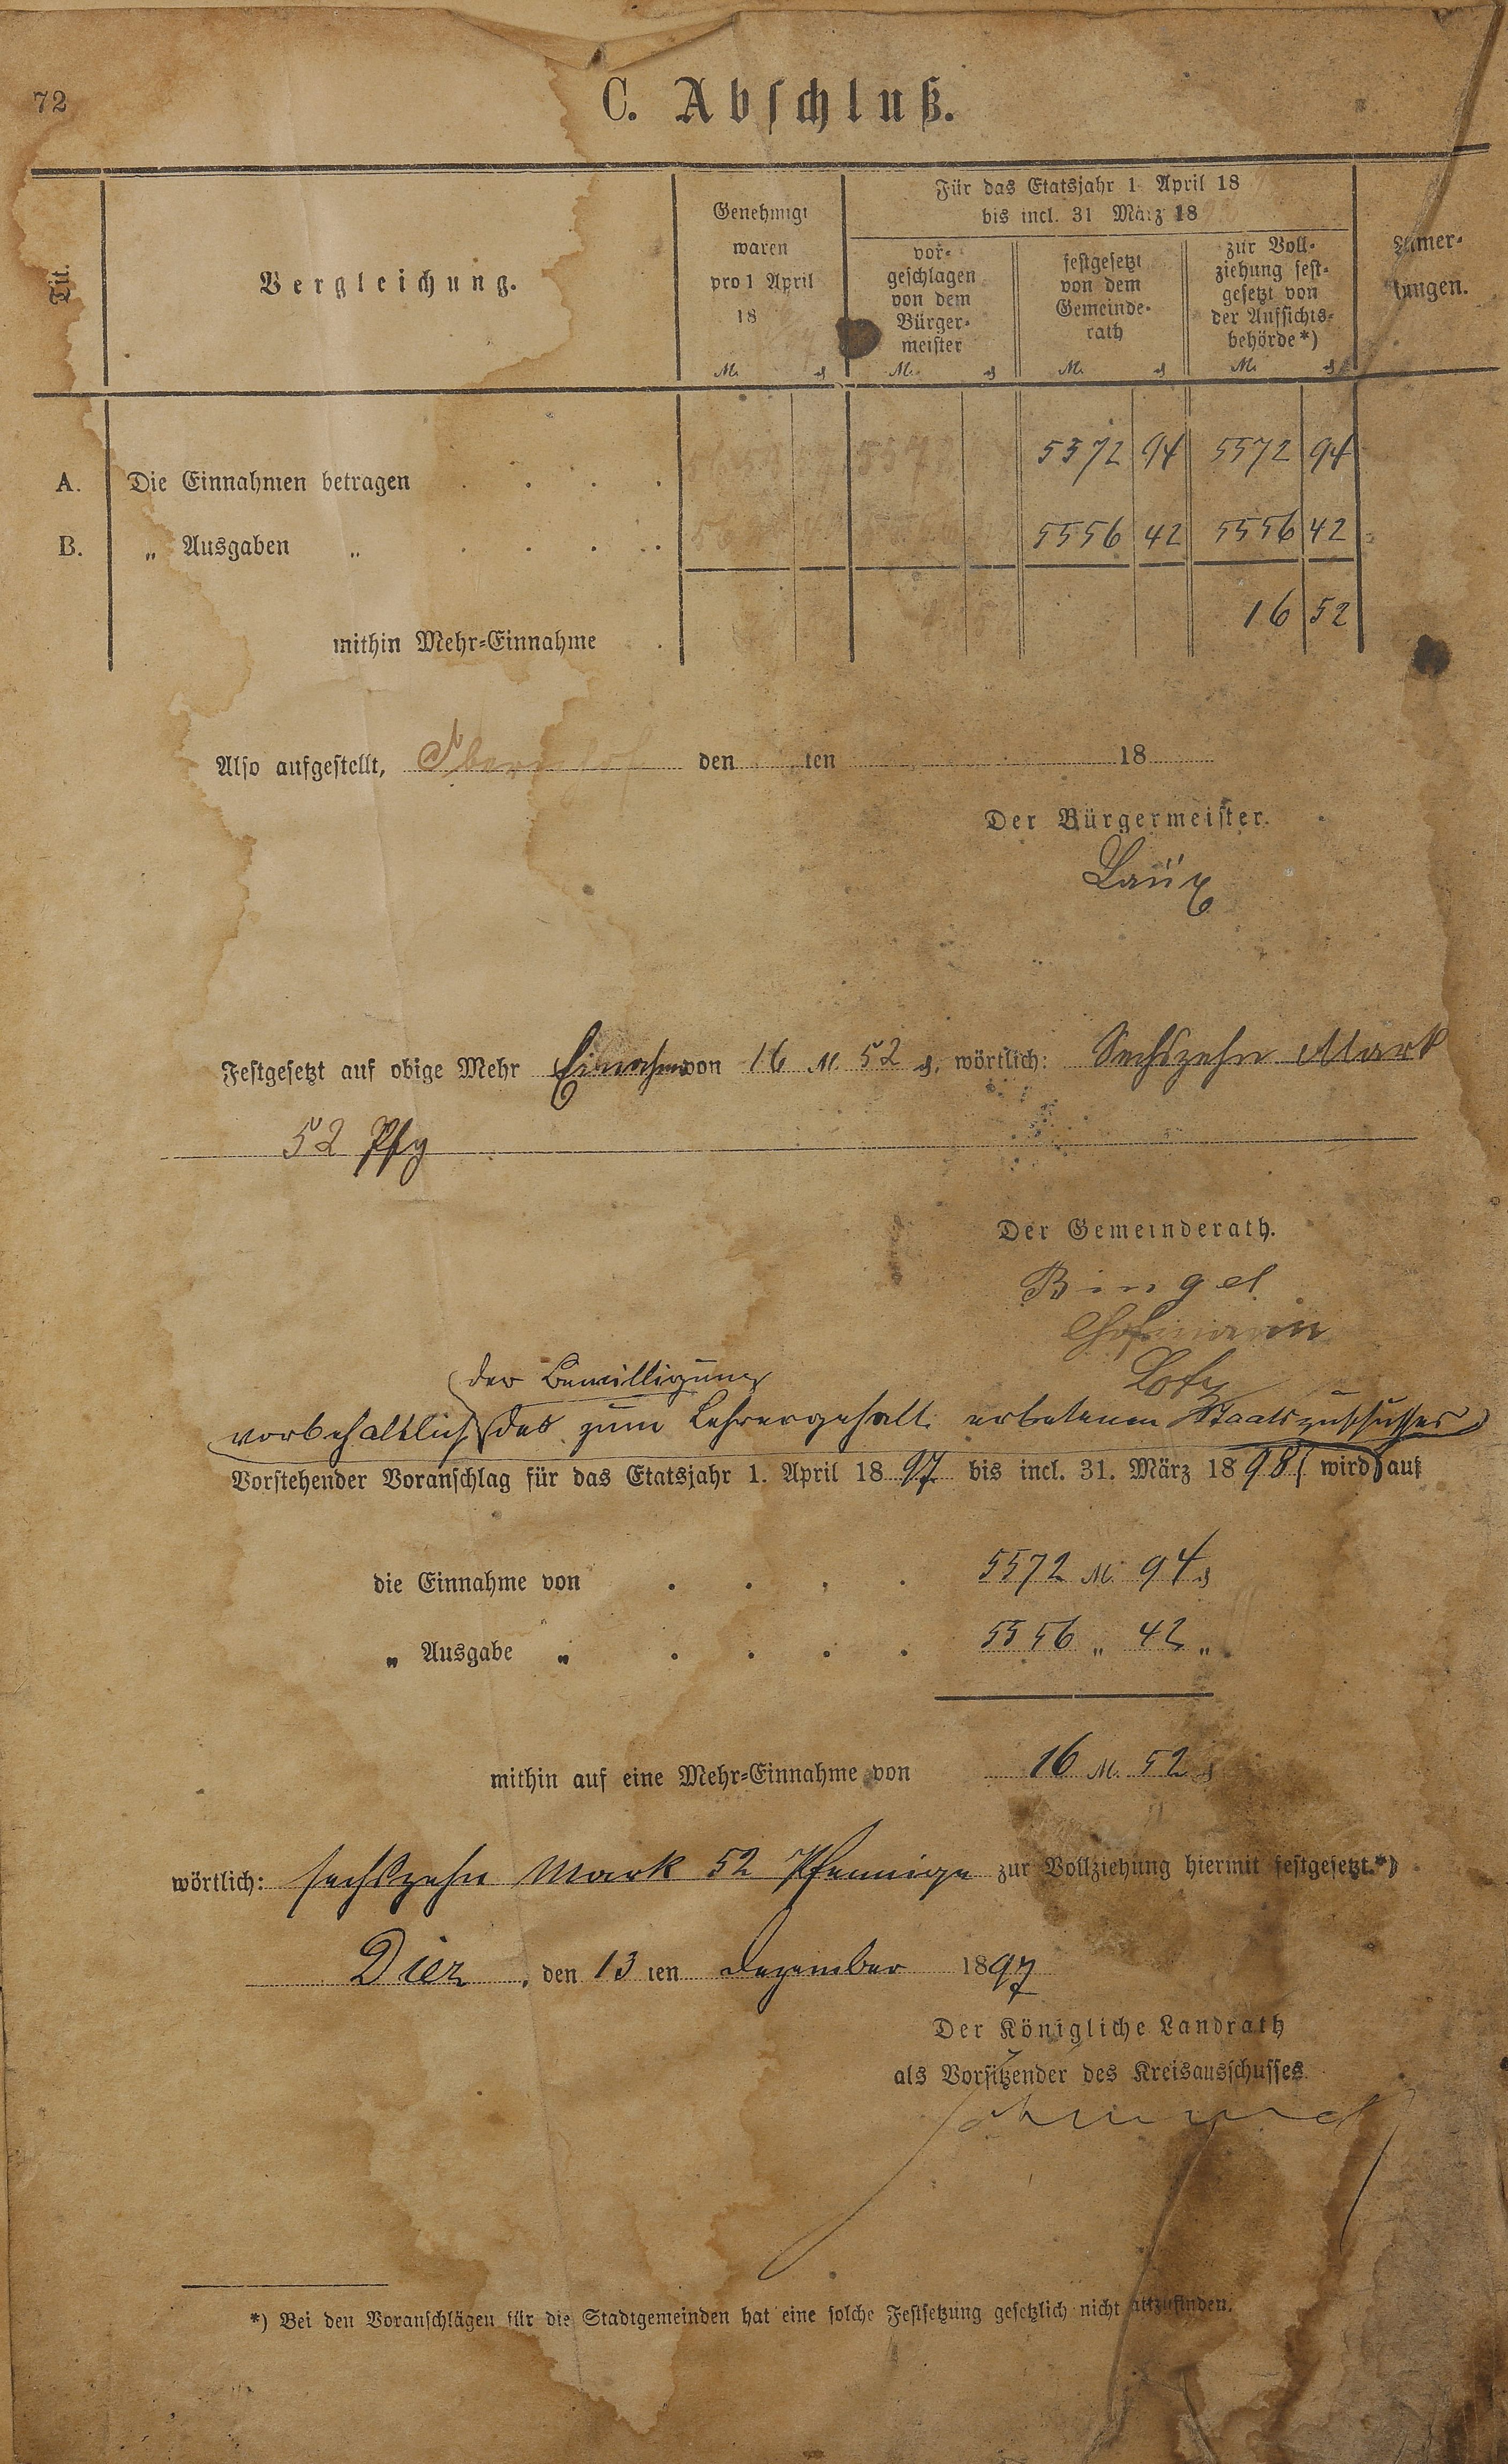 72
C. Abschluß.
Tit.
Vergleichung.
Genehmigt
waren
pro 1 April
18
Für das Etatsjahr 1. April 18
bis incl. 31 März 18
vor-
geschlagen
von dem
Bürger-
meister
festgesetzt
von dem
Gemeinde-
rath
zur Voll-
ziehung fest-
gesetzt von
der Aufsichts-
behörde*)
Anmer-
kungen.
M. ₰ M. ₰ M. ₰ M. ₰
A. Die Einnahmen betragen . . . . 5572 94 5572 94
B. „ Ausgaben „ . . . . 5556 42 5556 42
mithin Mehr-Einnahme . 16 52
Also aufgestellt, Obernhof den ten 18
Der Bürgermeister.
Laux
Festgesetzt auf obige Mehr Einnahme von 16 M. 52 ₰, wörtlich: Sechszehn Mark
52 Pfg
Der Gemeinderath.
Bingel
Hofmann
Lotz
der Bewilligung
vorbehaltlich des zum Lehrergehalt erbetenen Staatszuschusses
Vorstehender Voranschlag für das Etatsjahr 1. April 1897 bis incl. 31. März 1898 wird auf
die Einnahme von . . . . 5572 M. 94 ₰
„ Ausgabe „ . . . . 5556 „ 42 „
mithin auf eine Mehr-Einnahme von 16 M. 52 ₰
wörtlich: sechszehn Mark 52 Pfennige zur Vollziehung hiermit festgesetzt.*)
Diez, den 13ten Dezember 1897
Der Königliche Landrath
als Vorsitzender des Kreisausschusses.
*) Bei den Voranschlägen für die Stadtgemeinden hat eine solche Festsetzung gesetzlich nicht stattzufinden.